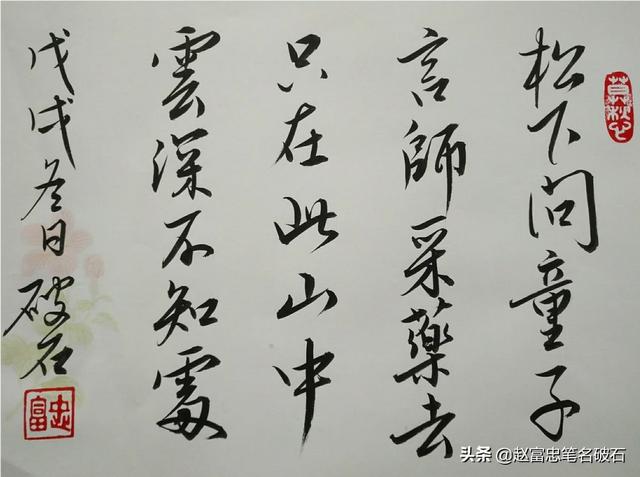 松下问童子
言師采藥去
只在此山中
雲深不知處
戊戌冬日 破石
富忠
头条 @赵富忠笔名破石